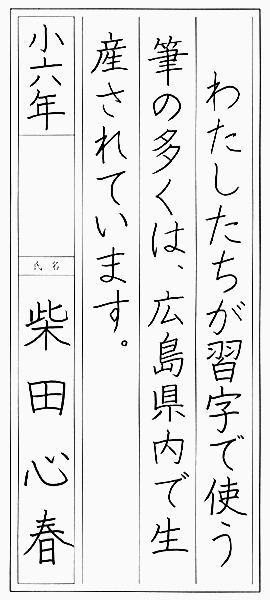 わたしたちが習字で使う
筆の多くは、広島県内で生
産されています。
小六年
氏名
柴田心春